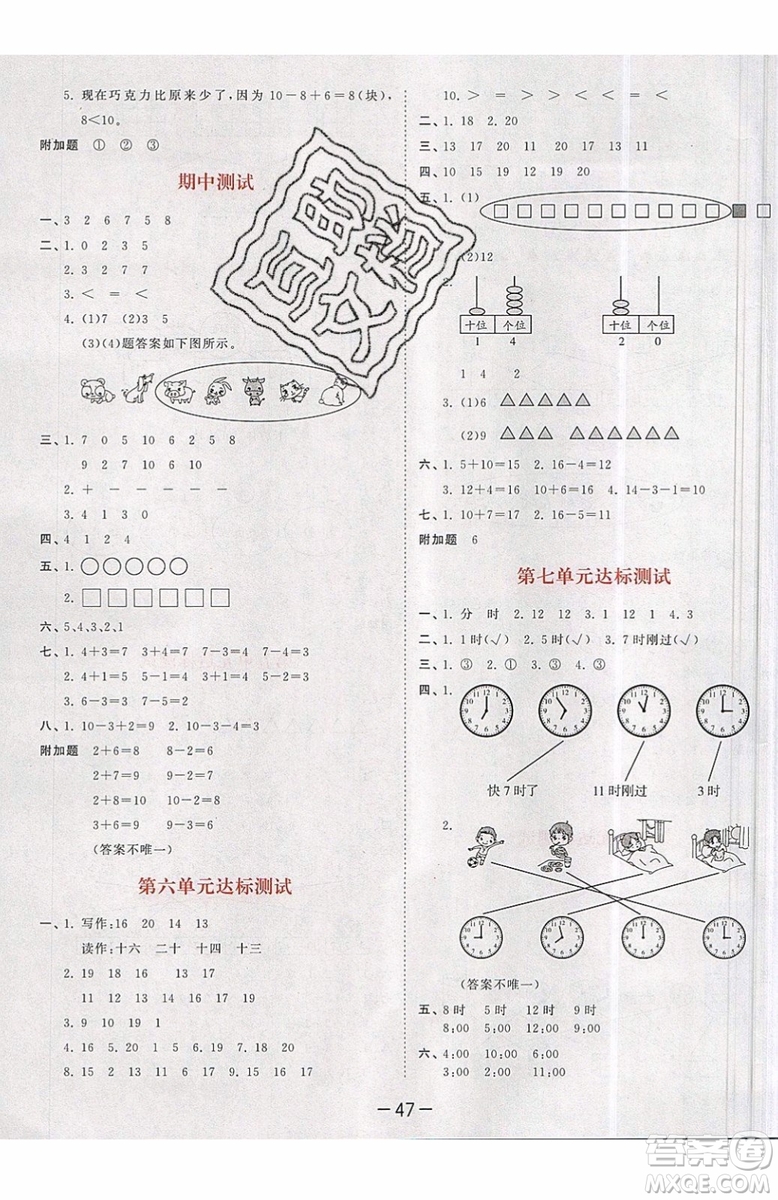 5. 现在巧克力比原来少了,因为 10－8＋6＝8(块),
8＜10。
附加题 ① ② ③
期中测试
一、3 2 6 7 5 8
二、1. 0 2 3 5
2. 7 7 7 7
3. ＜ ＝ ＝ ＜
4. (1)7 (2)3 5
(3)(4)题答案如下图所示。
三、1. 7 0 5 10 6 2 5 8
9 2 7 10 8
2. ＋ － － －
3. 4 1 3 0
四、4 1 2 4
五、1. ○○○○○
2. □□□□□□
六、5、4、3、2、1
七、1. 4＋3＝7 3＋4＝7 7－3＝4 7－4＝3
2. 4＋1＝5 1＋4＝5 5－1＝4 5－4＝1
3. 6－3＝3 7－5＝2
八、1. 10－3＋2＝9 2. 10－3－4＝3
附加题 2＋6＝8 8－2＝6
2＋7＝9 9－2＝7
2＋8＝10 10－2＝8
3＋6＝9 9－3＝6
(答案不唯一)
第六单元达标测试
一、1. 写作:16 20 14 13
读作:十六 二十 十四 十三
2. 19 18 16 13 17
11 12 13 17 19
3. 9 10 19 1
4. 16 5. 20 1 5 6. 19 20 7. 14 20
8. 15 2 13 12 17 9. 17 15 18
10. ＞ ＜ ＞ ＞ ＜ ＜ ＝ ＜
二、1. 18 2. 20
三、13 17 20 11 20 17 13 11
四、10 15 12 19 20
五、1. (1) □□□□□□□□□□■□
(2)12
2.
十位 个位 十位 个位
1 4 2 0
1 4 2
3. (1)6 △△△△△
(2)9 △△△ △△△△△△
六、1. 5＋10＝15 2. 16－4＝12
3. 12＋4＝16 10＋6＝16 4. 14－3－1＝10
七、1. 10＋7＝17 2. 16－5＝11
附加题 6
第七单元达标测试
一、1. 分 时 2. 12 12 3. 1 12 1 4. 3
二、1. 1时(√) 2. 5时(√) 3. 7时刚过(√)
三、1. ③ 2. ① 3. ③ 4. ③
四、1.
快7时了 11时刚过 3时
2.
(答案不唯一)
五、8时 5时 12时 9时
8:00 5:00 12:00 9:00
六、4:00 9:00 10:00
3:00 2:00 11:00
－47－
答案圈
MXQE.COM